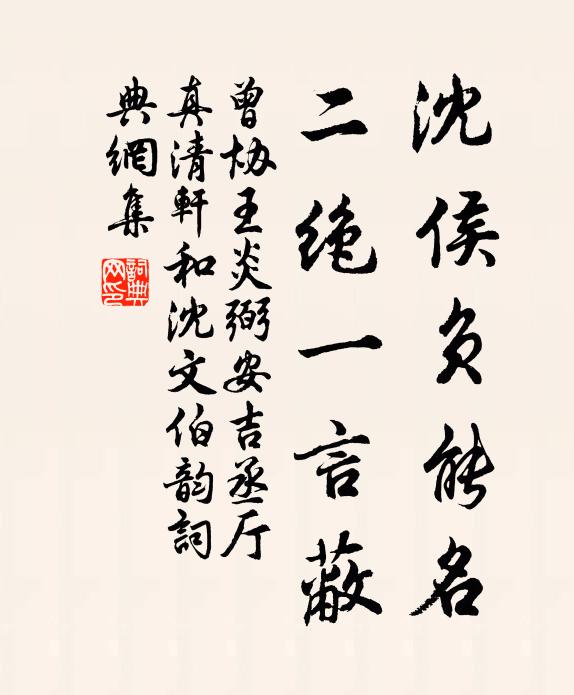 沈侯负能名
二绝一言蔽
曾协王炎弼安吉丞厅
真清轩和沈文伯韵詞
典網集
詞典
网印